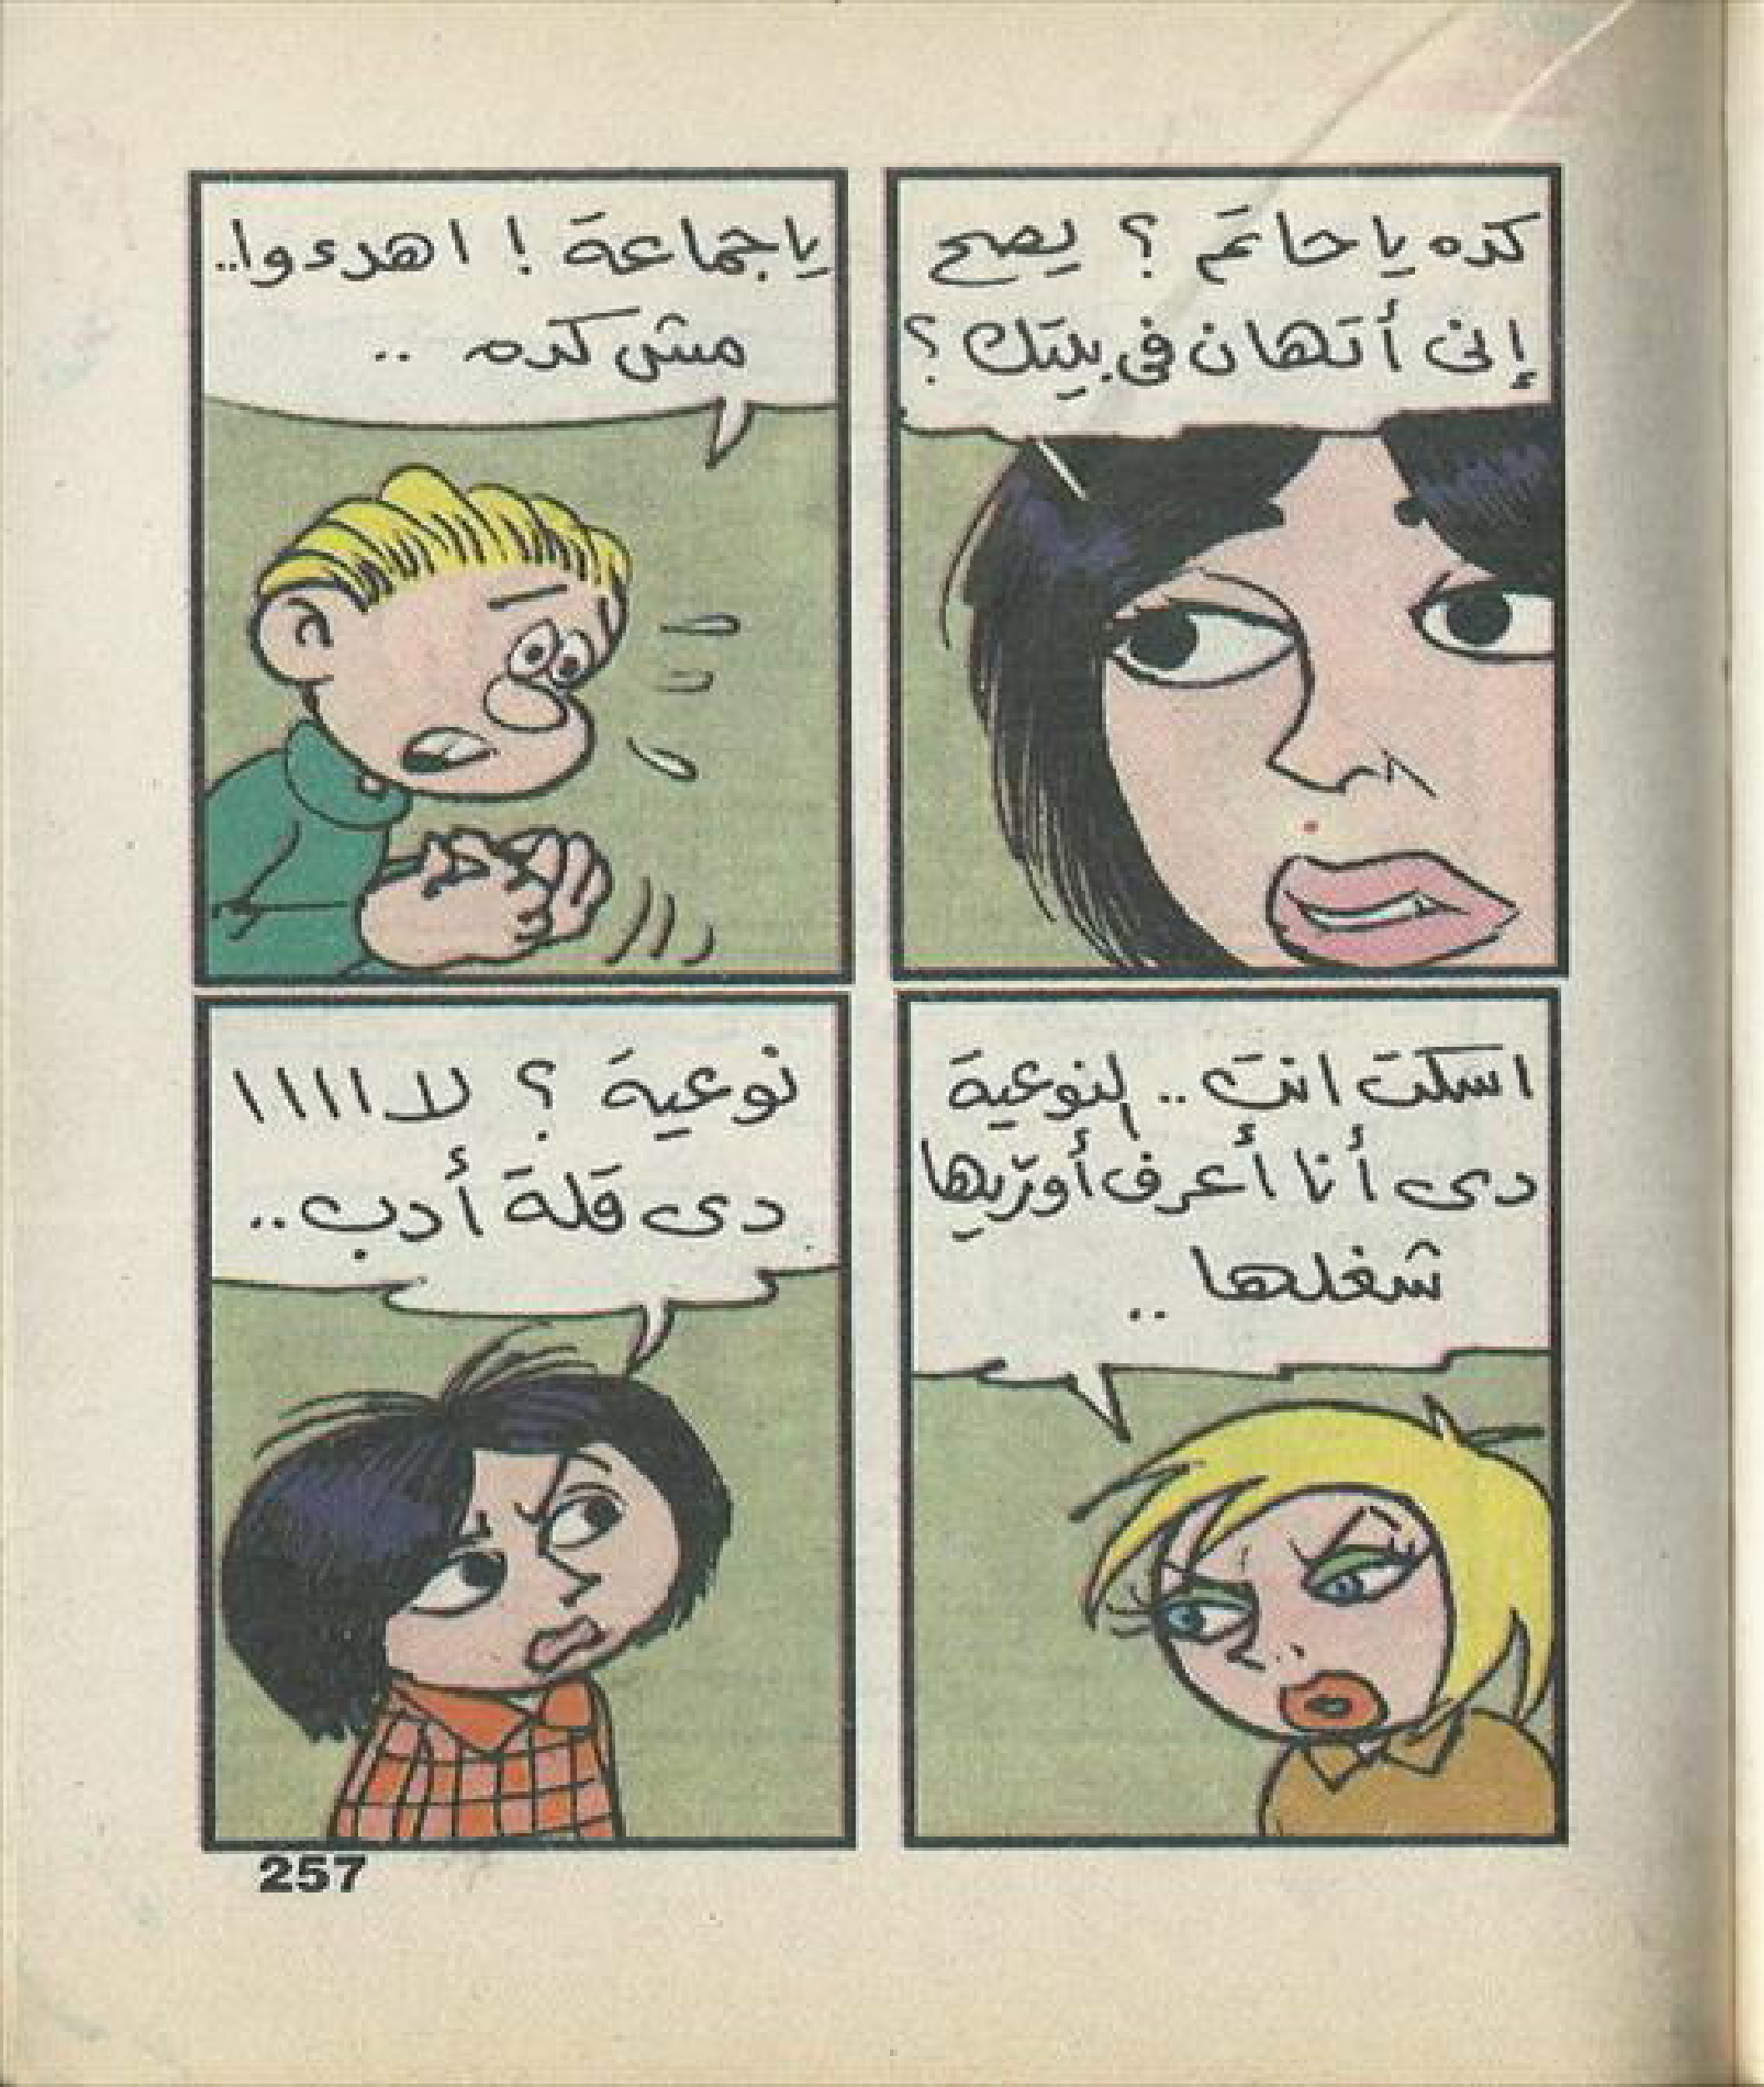 كده يا حاتم ؟ يصح
إنى أتهان فى بيتك ؟
يا جماعة ! اهدءوا..
مش كده ..
اسكت انت .. النوعية
دى أنا أعرف أورّيها
شغلها ..
نوعية ؟ لا اااا
دى قلة أدب ..
257